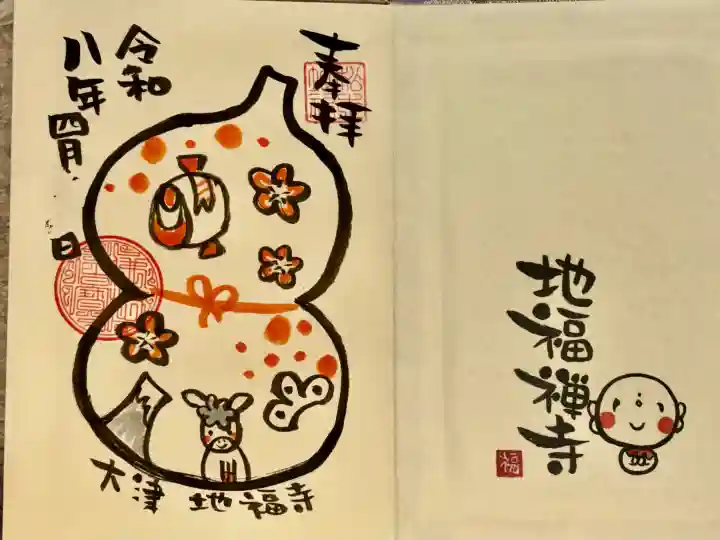 奉拝
令和
八年
四月
日
大津 地福寺
地福禅寺
福